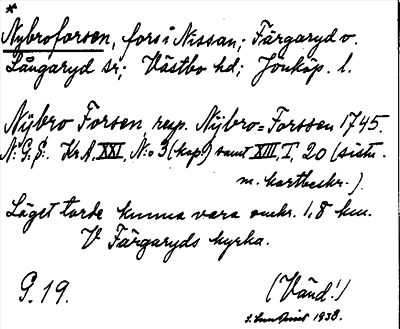 *
Nybroforsen, fors i Nissan; Färgaryd o.
Långaryd sr; Västbo hd; Jönköp. l.
Nÿbro Forsen resp. Nÿbro=Forssen 1745.
N:o 3 (kop.) samt XIII. T, 20 (sistn.
m. kartbeskr.).
Läget torde kunna vara omkr. 1,8 km.
V Färgaryds kyrka.
G. 19.
(Vänd!)
1938.